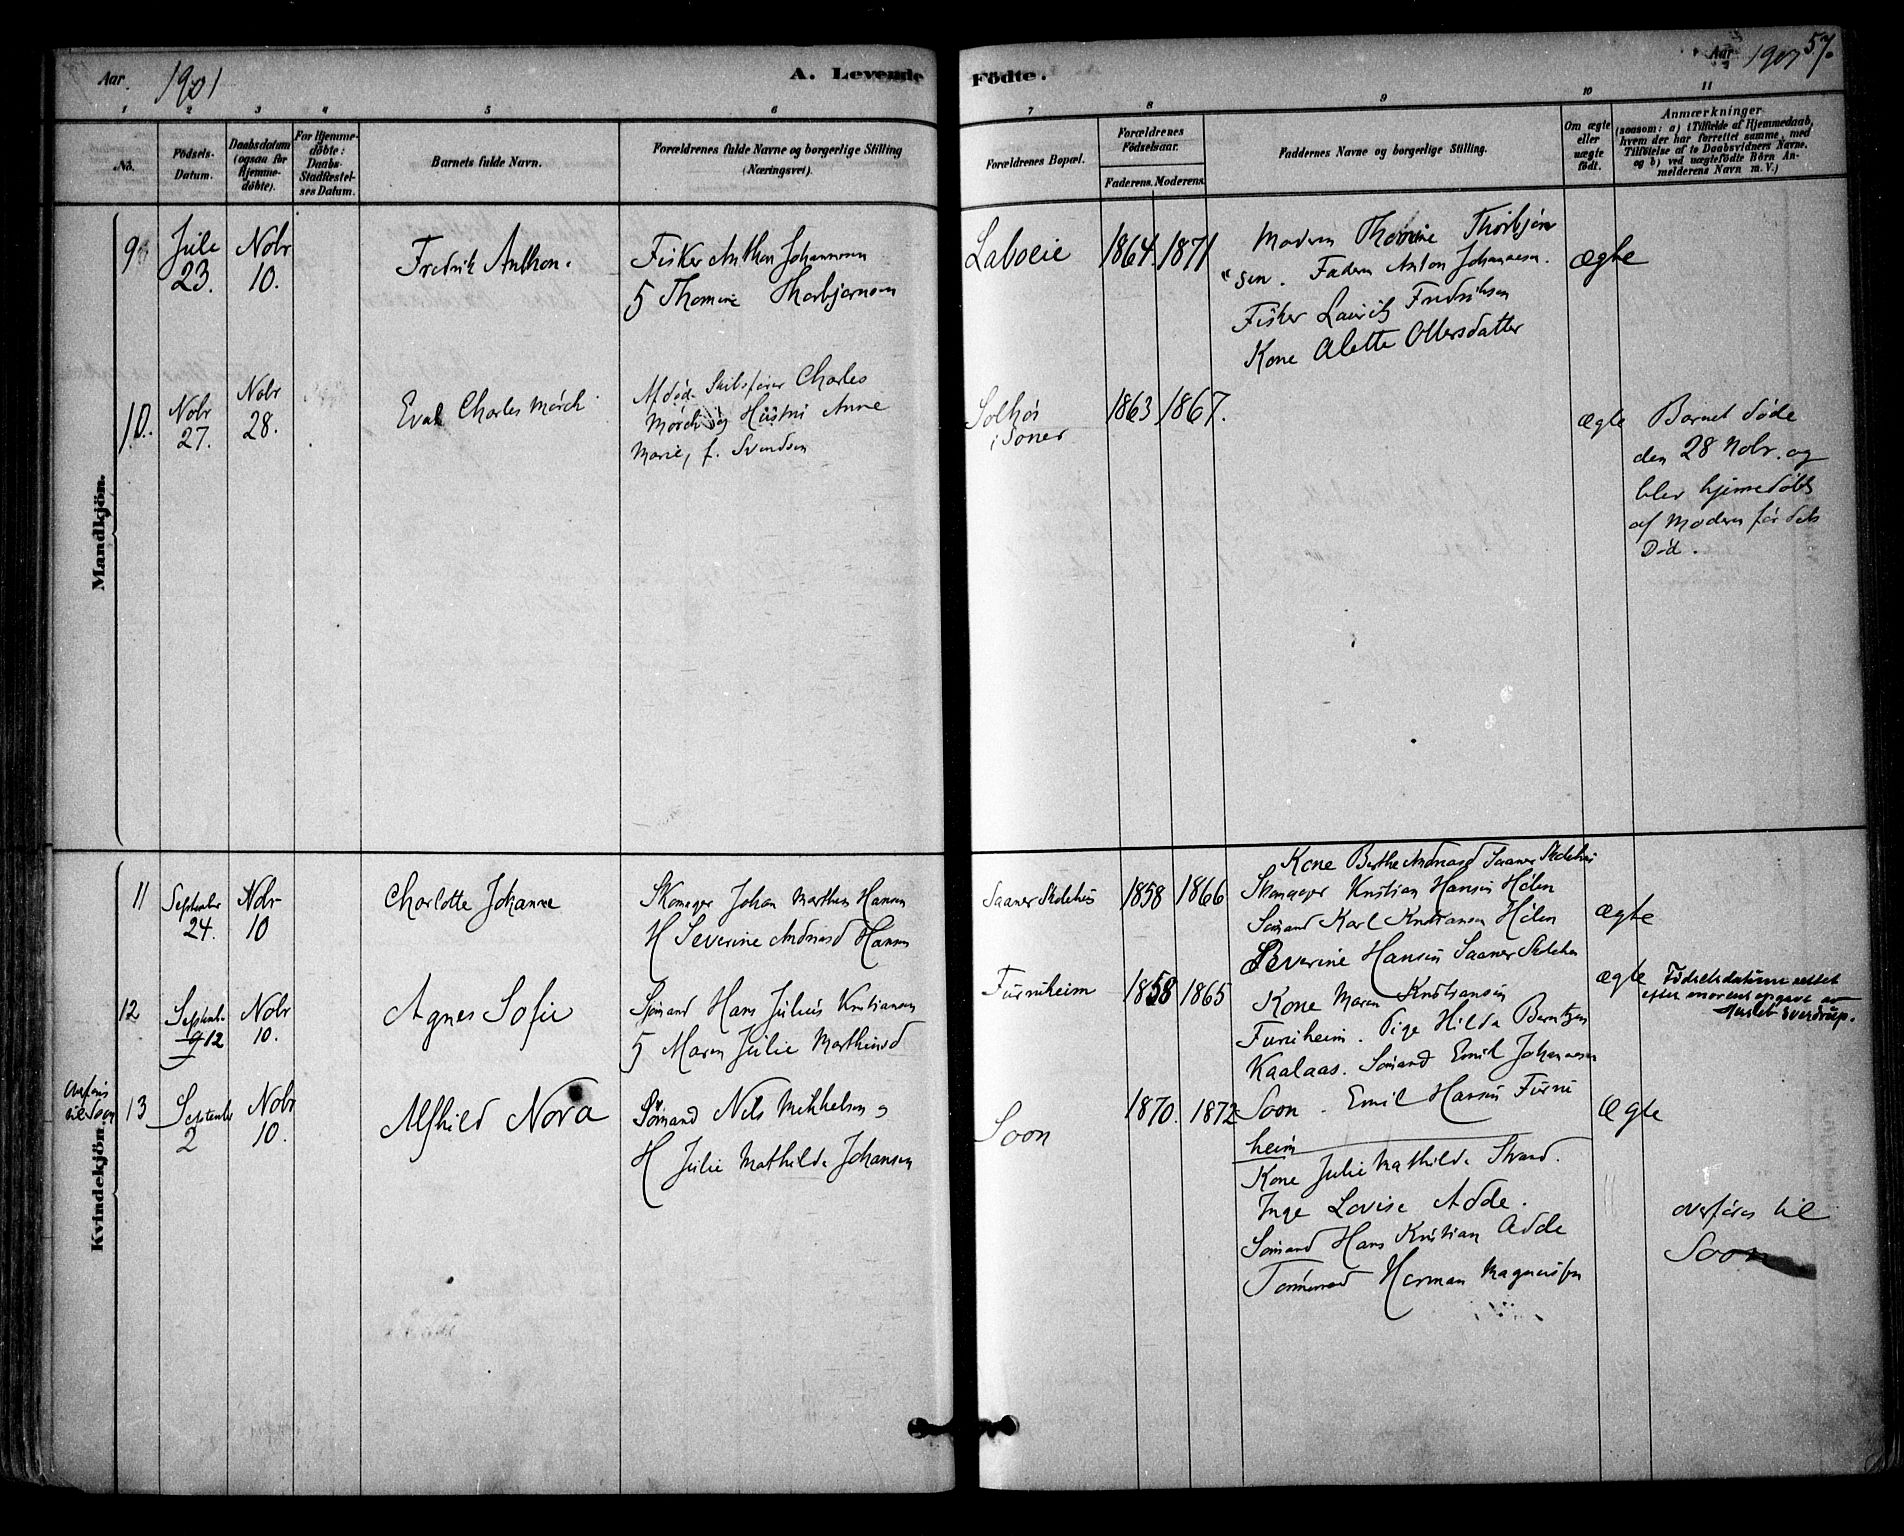 Aar. 1901
A. Levende Födte.
Aar 1901 57.
1 2 3 4 5 6 7 8 9 10 11
No.
Födsels-Datum.
Daabsdatum (ogsaa for Hjemmedöbte).
For Hjemmedöbte: Daabs-Stadfæstelses Datum.
Barnets fulde Navn.
Forældrenes fulde Navne og borgerlige Stilling (Næringsvei).
Forældrenes Bopæl.
Forældrenes Födselsaar.
Faderens. Moderens.
Faddernes Navne og borgerlige Stilling.
Om ægte eller uægte födt.
Anmærkninger
(saasom: a) i Tilfælde af Hjemmedaab, hvem der har forrettet samme, med Tilföielse af to Daabsvidners Navne, og b) ved uægtefödte Börn Anmelderens Navn m. V.)
Mandkjön.
9
Jule 23.
Nobr 10.
Fredrik Anthon.
Fisker Anthon Johannesen
Thomine Thorbjornsen
Laboeie
1864. 1871
Modern Thomine Thorbjörn
"sen. Fadern Anton Johannesen.
Fisker Lauritz Fredriksen
Kone Alette Ollersdatter
ægte
10.
Nobr 27.
Nobr 28.
Charles Mörch
Afdöd. Skibsförer Charles
Mörch og Hustru Anne
Marie, f. Svendsen
Solhöi
i Soner
1863 1867.
ægte
Barnet döde
den 28 Nobr. og
blev hjemedöbt
af Modern för dets
Död.
Kvindekjön.
11
September 24.
Nobr 10
Charlotte Johanne
Skomager Johan Marthin Hansen
H Severine Andreasd Hansen
Saaner Skolehus
1858 1866
Kone Berthe Andreasd Saaner Skolehus
Skomager Kristian Hansen Hölen
Sömand Karl Kristiansen Hölen
Severine Hansen Saaner Skolehus
ægte
12
Septemb. 9 12
Nobr 10.
Agnes Sofie
Sömand Hans Julius Kristiansen
Maren Julie Marthinsd
Furuheim
1858 1865
Kone Maren Kristiansen
Furuheim. Pige Hilda Berntzen
Kaalaas. Sömand Emil Johannesen
Soon. Emil Hansen Furu
heim
ægte
Födselsdatum rettet
efter opgave av
Sverdrup.
overføres
til Soon
13
September 2
Nobr 10.
Alfhild Nora
Sömand Nils Mikkelsen o
H Julie Mathilde Johansen
Soon
1870. 1872
Kone Julie Mathilde Strand.
Inge Lovise Adde.
Sömand Hans Kristian Adde
Tömmermd Herman Magnussen
ægte
overføres til
Soon